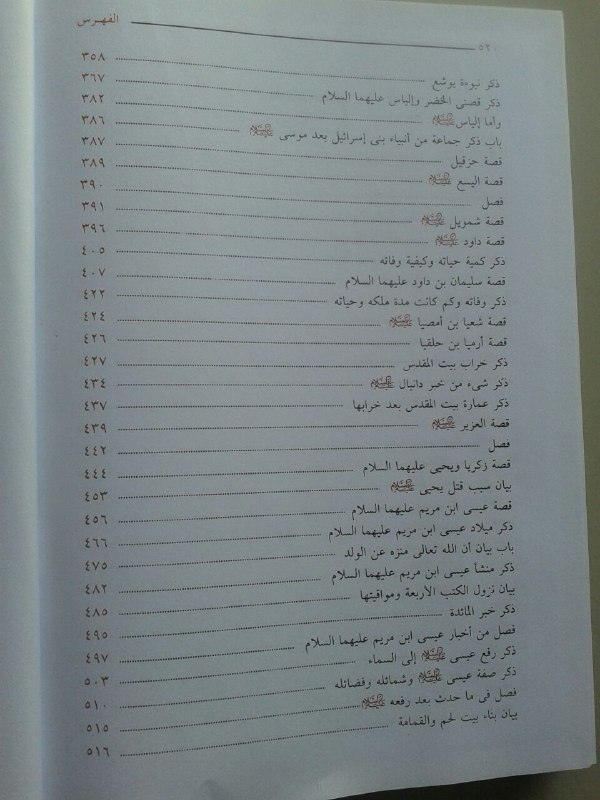 ٥٢ الفهرس
ذكر نبوءة يوشع ٣٥٨
ذكر قصتى الخضر وإلياس عليهما السلام ٣٦٧
وأما إلياس عليه السلام ٣٨٢
باب ذكر جماعة من أنبياء بنى إسرائيل بعد موسى عليه السلام ٣٨٦
قصة حزقيل ٣٨٧
قصة اليسع عليه السلام ٣٨٩
فصل ٣٩٠
قصة شمويل عليه السلام ٣٩١
قصة داود عليه السلام ٣٩٦
ذكر كمية حياته وكيفية وفاته ٤٠٥
قصة سليمان بن داود عليهما السلام ٤٠٧
ذكر وفاته وكم كانت مدة ملكه وحياته ٤٢٢
قصة شعيا بن أمصيا عليه السلام ٤٢٤
قصة أرميا بن حلقيا ٤٢٦
ذكر خراب بيت المقدس ٤٢٧
ذكر شىء من خبر دانيال عليه السلام ٤٣٤
ذكر عمارة بيت المقدس بعد خرابها ٤٣٧
قصة العزير عليه السلام ٤٣٩
فصل ٤٤٢
قصة زكريا ويحيى عليهما السلام ٤٤٤
بيان سبب قتل يحيى عليه السلام ٤٥٣
قصة عيسى ابن مريم عليهما السلام ٤٥٦
ذكر ميلاد عيسى ابن مريم عليهما السلام ٤٦٦
باب بيان أن الله تعالى منزه عن الولد ٤٧٥
ذكر منشأ عيسى ابن مريم عليهما السلام ٤٨٢
بيان نزول الكتب الأربعة ومواقيتها ٤٨٥
ذكر خبر المائدة ٤٩٥
فصل من أخبار عيسى ابن مريم عليهما السلام ٤٩٧
ذكر رفع عيسى عليه السلام إلى السماء ٥٠٣
ذكر صفة عيسى عليه السلام وشمائله وفضائله ٥١٠
فصل فى ما حدث بعد رفعه عليه السلام ٥١٥
بيان بناء بيت لحم والقمامة ٥١٦